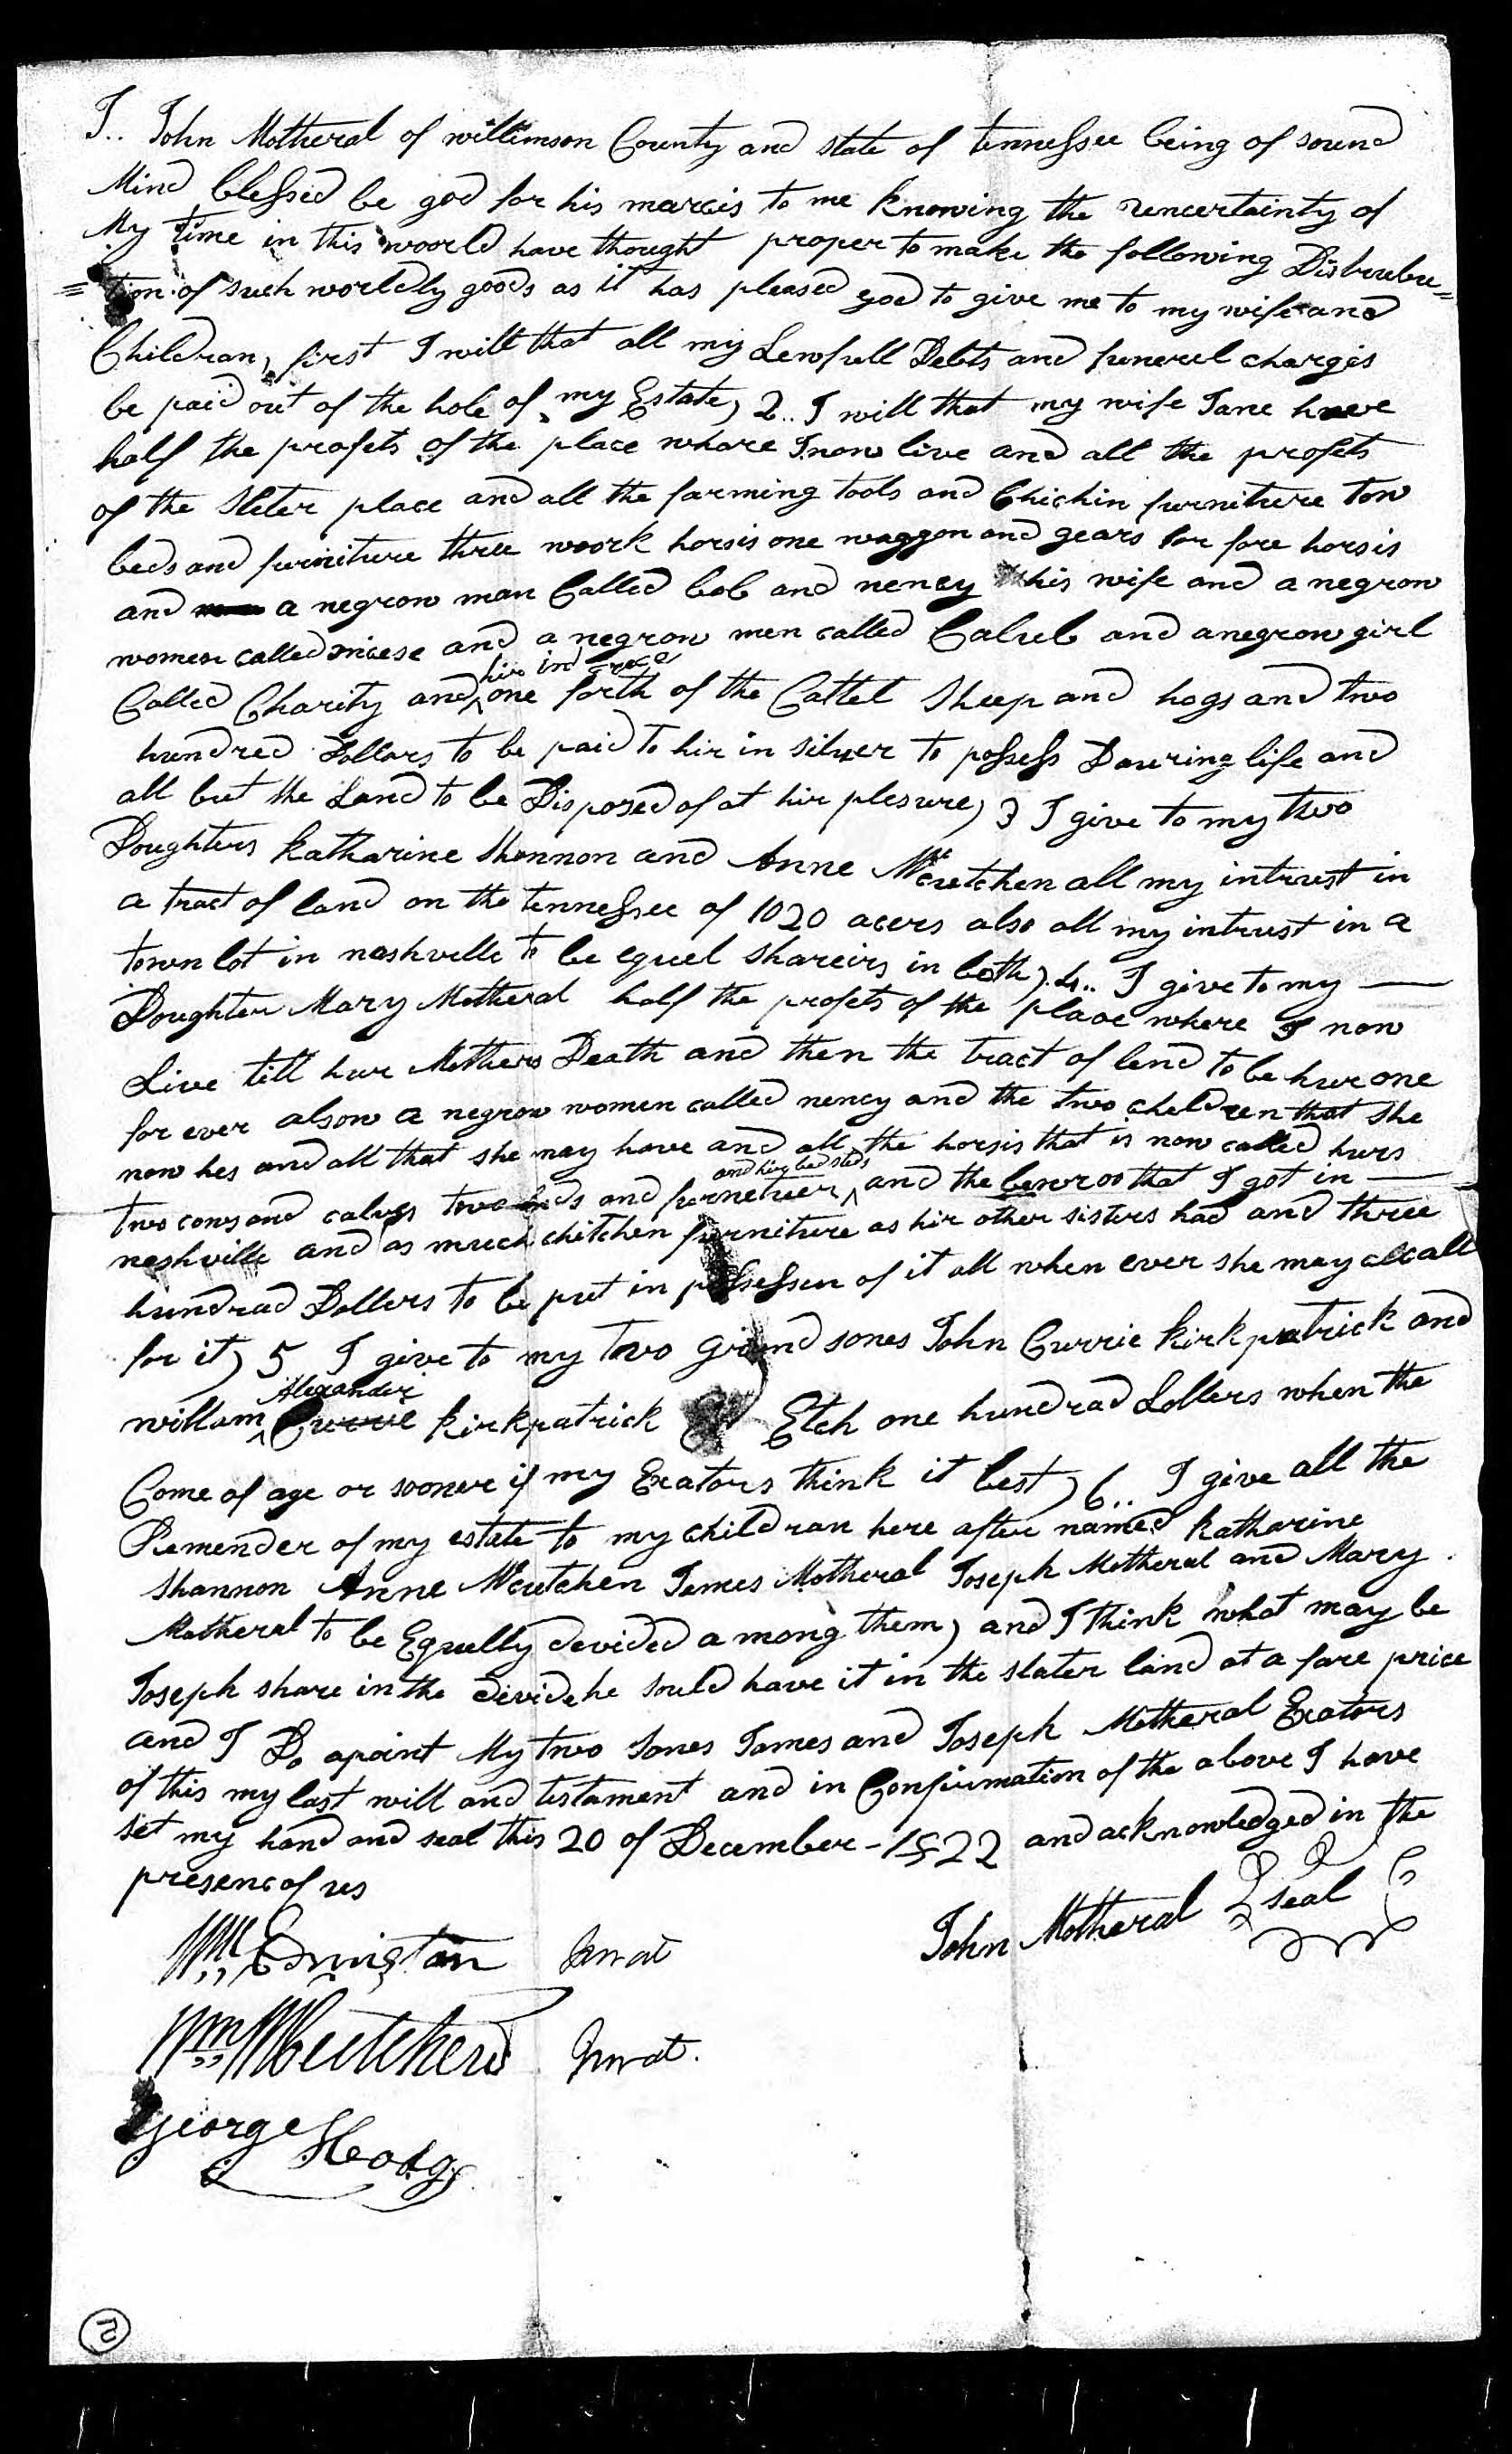 I.. John Motheral of willimson County and state of tennessee being of sound
Mind blessed be god for his marcis to me knowing the uncertainty of
My time in this woorld have thought proper to make the following Distrubu=
=tion of such worldly goods as it has pleased god to give me to my wife and
Childran, first I will that all my Lawfull Debts and funerel chargis
be paid out of the hole of my Estate) 2.. I will that my wife Jane have
half the profets of the place whare I now live and all the profets
of the Sleter place and all the farming tools and Chichin furniture tow
beds and furniture three woork horsis one waggon and gears for fore horsis
and a negrow man Called bob and nency his wife and a negrow
women called and a negrow men called Caleb and a negrow girl
hir ind
Called Charity and ^ one forth of the Cattel Sheep and hogs and two
hundred Dollars to be paid to hir in silver to possess Dauring life and
all but the Land to be Disposed of at hir plesure) 3 I give to my two
Doughters Katharine Shannon and Anne Mccutchen all my intrust in
a tract of land on the tennessee of 1020 acers also all my intrust in a
town lot in nashville to be equel shareirs in both) 4.. I give to my —
Doughter Mary Motheral half the profets of the place where I now
Live till hur Mothers Death and then the tract of lend to be hur one
for ever alsow a negrow women called nency and the two children that she
now hes and all that she may have and all the horsis that is now called hurs
and hir bedsteds
two cows and calvs two beds and furnetuer ^ and the that I got in —
neshville and as much chitchen furniture as hir other sisters had and three
hundrad Dollers to be put in possessen of it all when ever she may call
for it) 5 I give to my two grand sones John Currie Kirkpatrick and
Alexander
willam ^ Currie Kirkpatrick Etch one hundrad Dollers when the
Come of age or sooner if my Exators think it best) 6.. I give all the
Remender of my estate to my childran here after named Katharine
Shannon Anne Mccutchen James Motheral Joseph Motheral and Mary
Motheral to be Equelly devided among them) and I think what may be
Joseph share in the devide he sould have it in the slater land at a fare price
and I Do apoint My two Sones James and Joseph Motheral Exators
of this my last will and testament and in Confirmation of the above I have
set my hand and seal this 20 of December - 1822 and acknowledged in the
presenc of us
John Motheral seal
Wm Edmiston Jurat
Wm McCutchen Jurat.
George Hodg